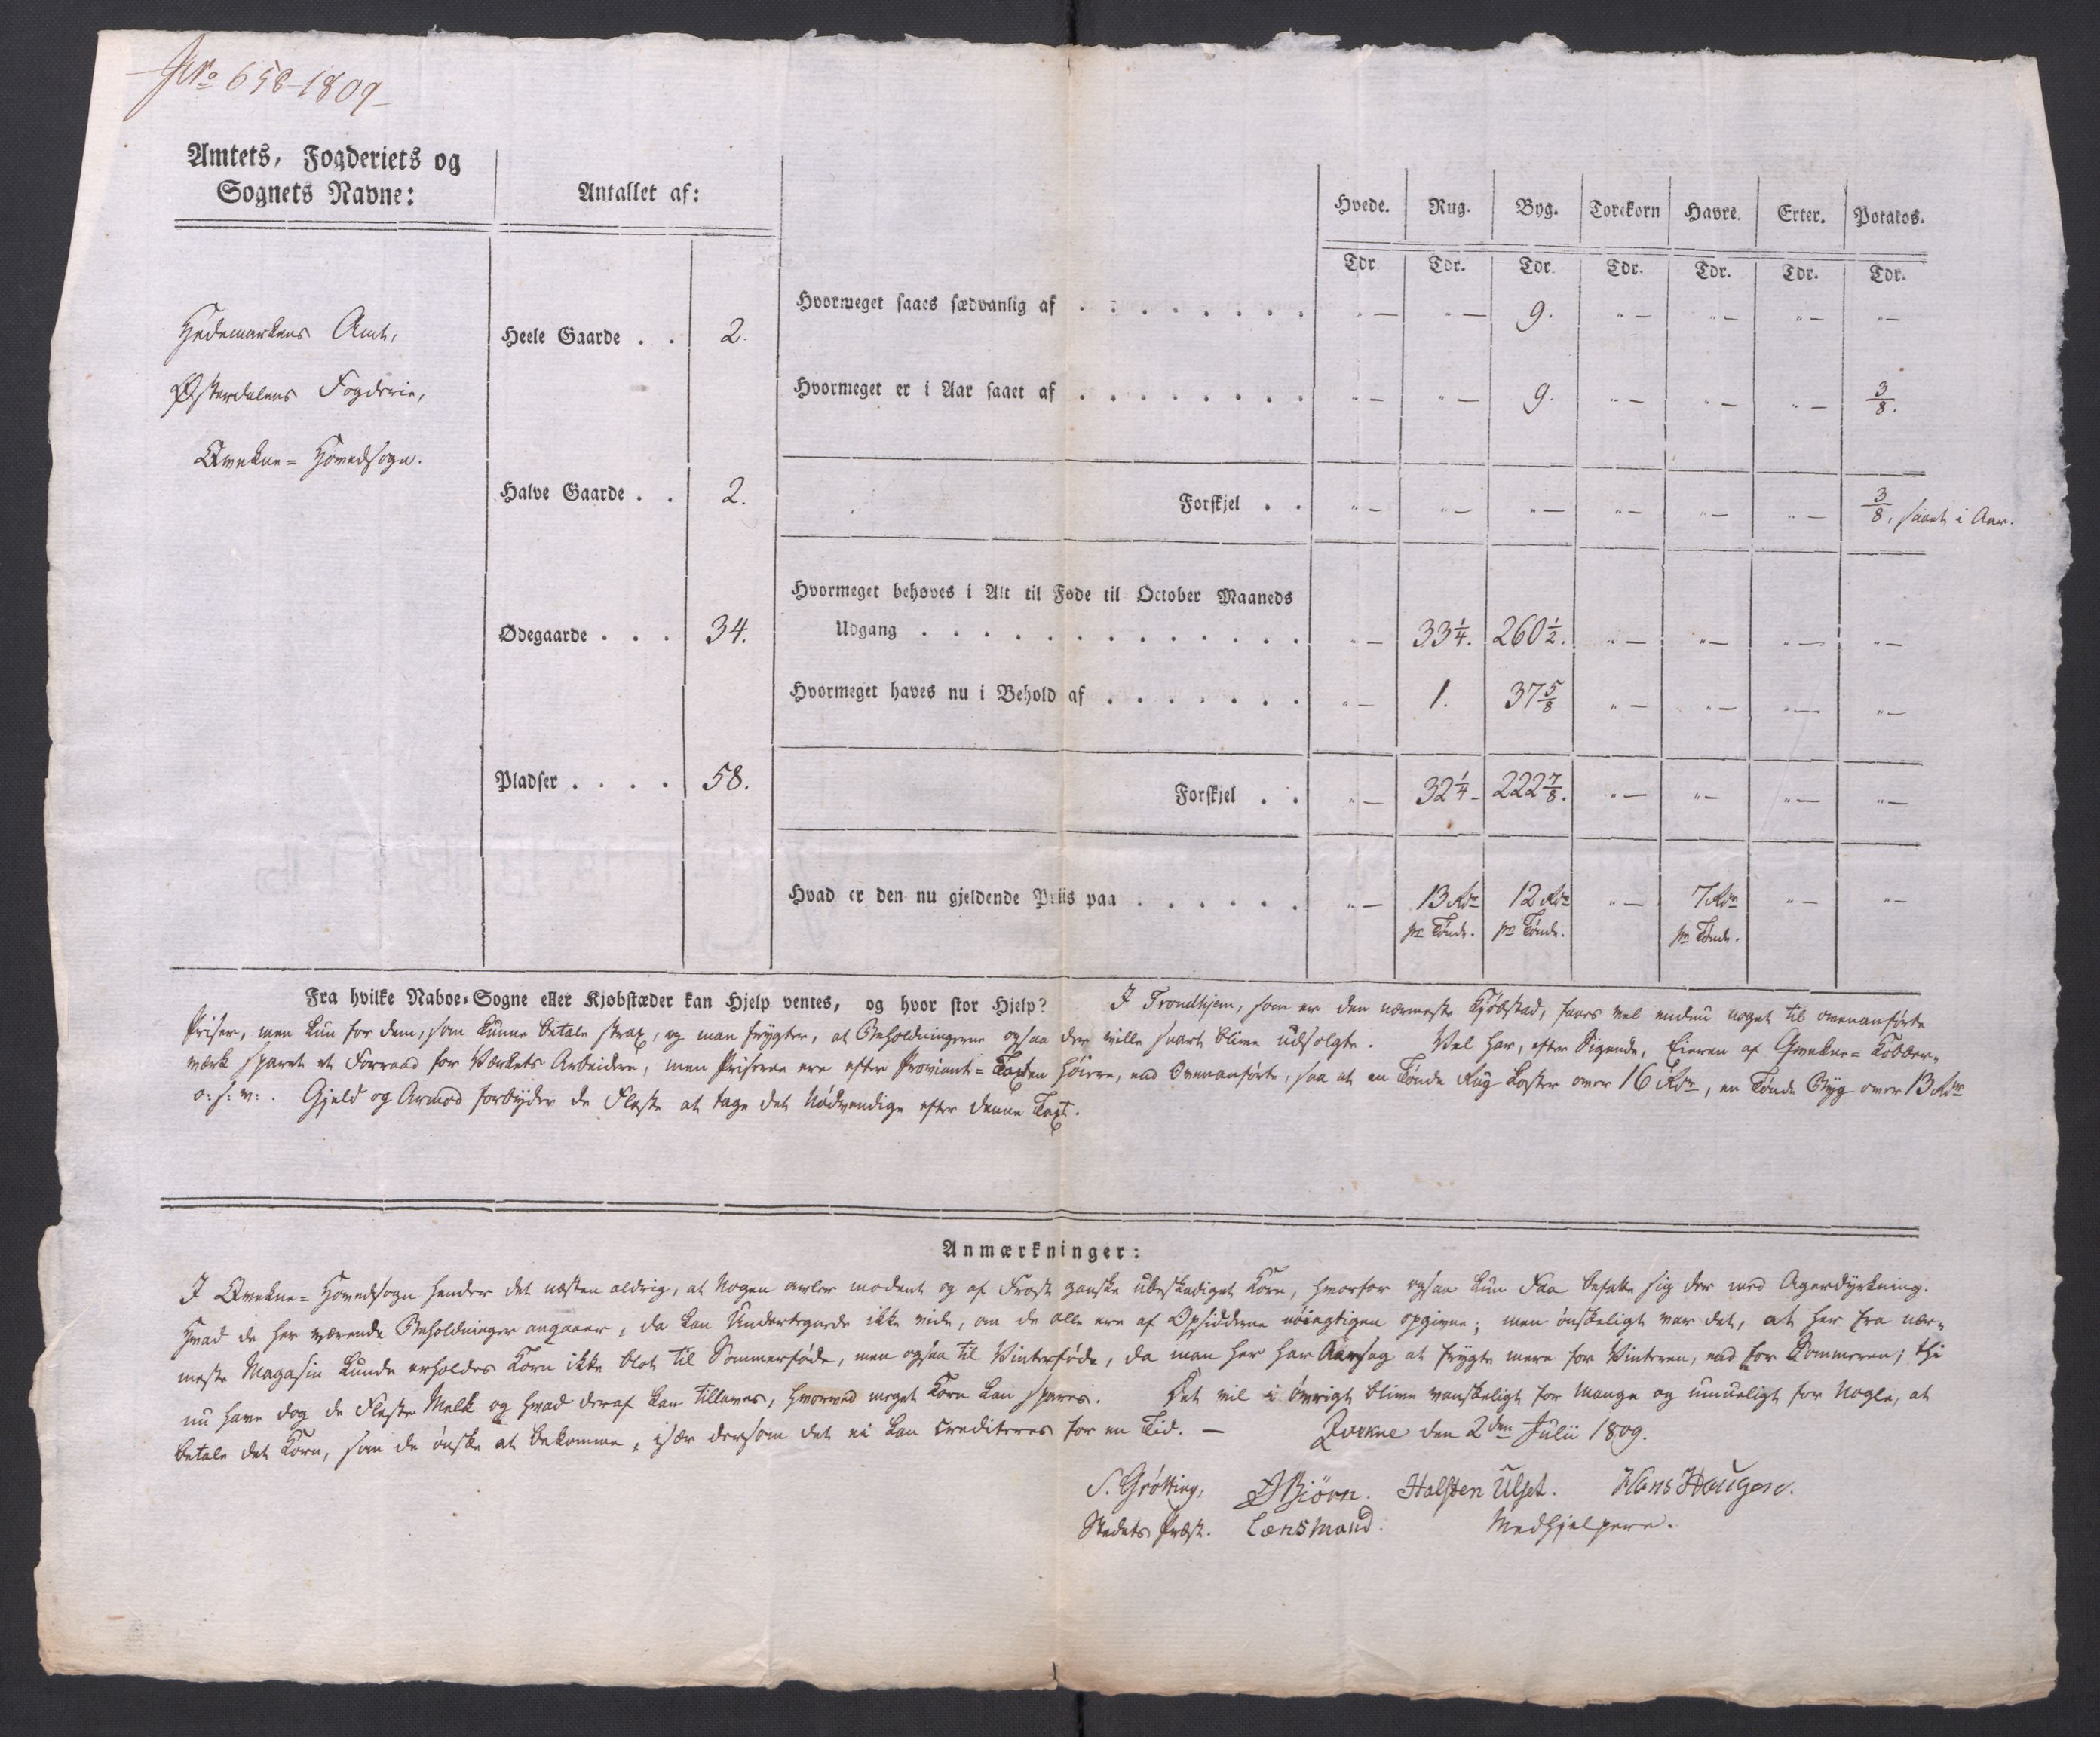 No 658-1809
Amtets, Fogderiets og
Sognets Navne:
Antallet af:
Hvede. Rug. Byg. Torekorn Havre. Erter. Potatos.
Tdr. Tdr. Tdr. Tdr. Tdr. Tdr. Tdr.
Hedemarkens Amt,
Østerdalens Fogderie,
Qvekne= Hovedsogn.
Heele Gaarde . . 2.
Halve Gaarde . . 2.
Ødegaarde . . . 34.
Pladser . . . . 58.
Hvormeget saaes sædvanlig af . . . . . . . . "— "— 9. "— "— "— "—
Hvormeget er i Aar saaet af . . . . . . . . "— "— 9. "— "— "— 3/8.
Forskjel . . "— "— "— "— "— "— 3/8, saaet i Aar.
Hvormeget behøves i Alt til Føde til October Maaneds
Udgang . . . . . . . . . . . . . "— 33 1/4. 260 1/2. "— "— "— "—
Hvormeget haves nu i Behold af . . . . . . . "— 1. 37 5/8 "— "— "— "—
Forskjel . . "— 32 1/4- 222 7/8. "— "— "— "—
Hvad er den nu gjeldende Priis paa . . . . . . "— 13 Rdr 12 Rdr "— 7 Rdr "— "—
pr Tønde. pr Tønde. pr Tønde.
Fra hvilke Naboe-Sogne eller Kjøbstæder kan Hjelp ventes, og hvor stor Hjelp? I Trondhjem, som er den nærmeste Kjøbstad, faaes vel endnu noget til ovenanførte
Priser, men kun for dem, som kunne betale strax, og man frygter, at Beholdningerne ogsaa der ville snart blive udsolgte. Vel har, efter Sigende, Eieren af Qvekne= Kobber-
værk sparet et Forraad for Værkets Arbeidere, men Priserne ere efter Proviant= Taxten høiere, end Ovenanførte, saa at en Tønde Rug koster over 16 Rdr, en Tønde Byg over 13 Rdr
o: s: v: . Gjeld og Armod forbyder de Fleste at tage det Nødvendige efter denne Taxt.
Anmærkninger:
I Qvekne= Hovedsogn hender det næsten aldrig, at Nogen avler modent og af Frost ganske ubeskadiget Korn, hvorfor ogsaa kun Faa befatte sig der med Agerdyrkning.
Hvad de her værende Beholdninger angaaer, da kan Undertegnede ikke vide, om de alle ere af Opsidderne nøiagtigen opgivne; men ønskeligt var det, at her fra nær-
meste Magasin kunde erholdes Korn ikke blot til Sommerføde, men ogsaa til Vinterføde, da man her har Aarsag at frygte mere for Vinteren, end for Sommeren; thi
nu have dog de Fleste Melk og hvad deraf kan tillaves, hvorved meget Korn kan spares. Det vil i øvrigt blive vanskeligt for Mange og umueligt for Nogle, at
betale det Korn, som de ønske at bekomme, især dersom det ei kan crediteres for en Tid. — Qvekne den 2den Julii 1809.
S. Grøtting, Bjørn. Halsten Ulset. Hans Hougen.
Stedets Præst. Lænsmand. Medhjelpere.